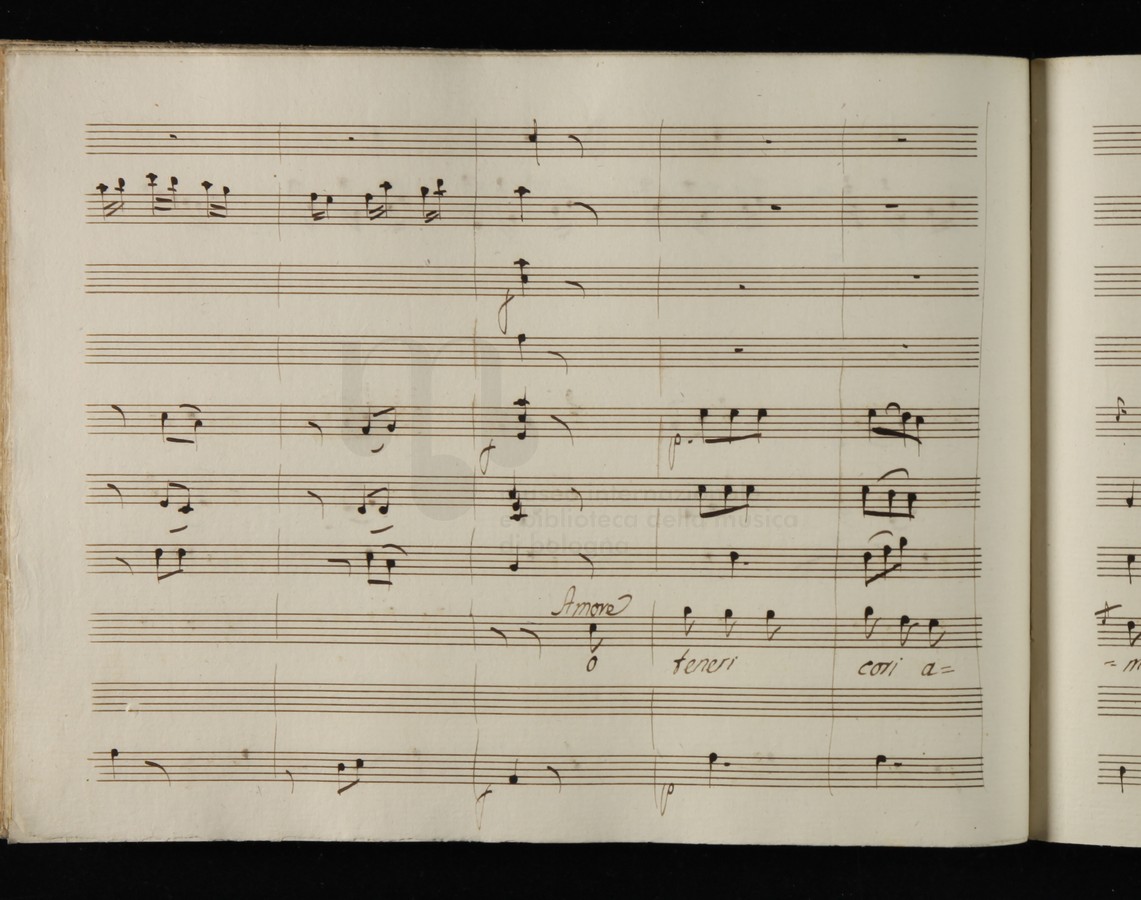 f
museo internazionale
f
p.
e biblioteca della musica
di bologna
Amore
o teneri cori a=
f
p